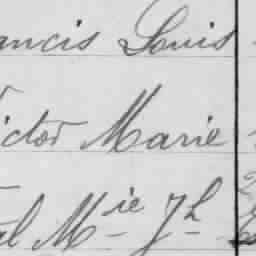 ancis Louis
ictor Marie
al M^ie J^h